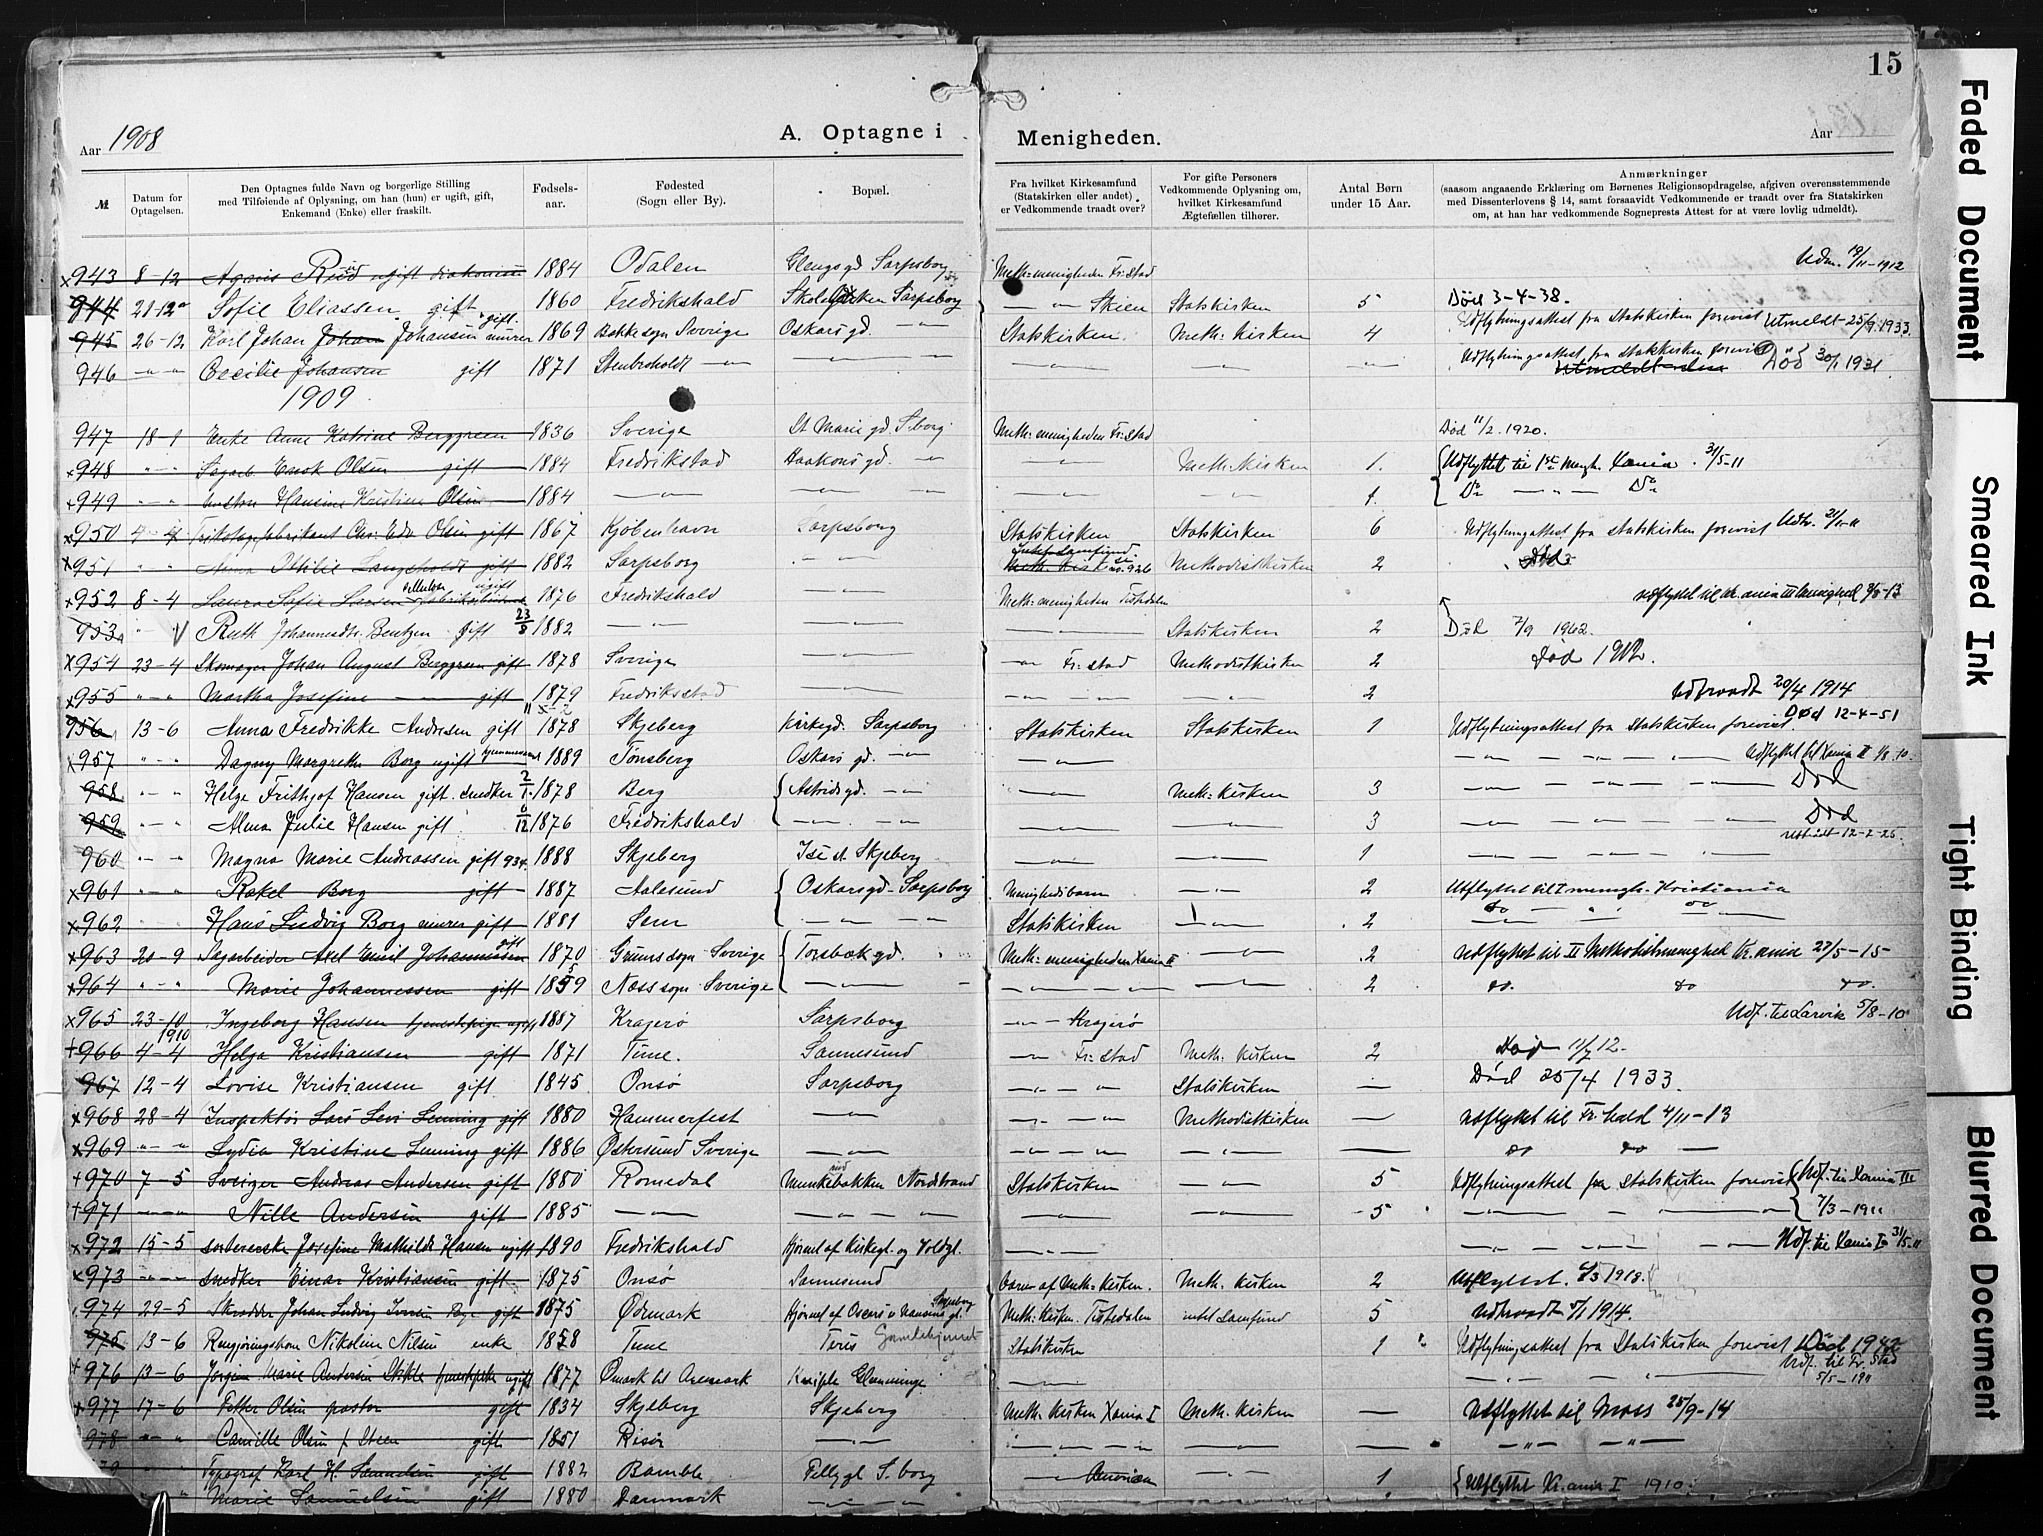 15
Aar 1908
A. Optagne i Menigheden.
Aar
№
Datum for Optagelsen.
Den Optagnes fulde Navn og borgerlige Stilling
med Tilføiende af Oplysning, om han (hun) er ugift, gift,
Enkemand (Enke) eller fraskilt.
Fødsels-aar.
Fødested
(Sogn eller By).
Bopæl.
Fra hvilket Kirkesamfund
(Statskirken eller andet)
er Vedkommende traadt over?
For gifte Personers
Vedkommende Oplysning om,
hvilket Kirkesamfund
Ægtefællen tilhører.
Antal Børn
under 15 Aar.
Anmærkninger
(saasom angaaende Erklæring om Børnenes Religionsopdragelse, afgiven overensstemmende
med Dissenterlovens § 14, samt forsaavidt Vedkommende er traadt over fra Statskirken
om, at han har vedkommende Sogneprests Attest for at være lovlig udmeldt).
x943 8-12 Agnes Rud ugift diakonisse 1884 Odalen Glengsgd Sarpsborg Meth: menigheden Fr:stad Udm. 19/11-1912
944 21-12 Sofie Eliassen gift 1860 Fredrikshald Sarpsborg — Skien Statskirken 5 Død 3-4-38.
945 26-12 Karl Johan Johan Johansen murer gift 1869 Bakke sogn Sverige Oskarsgd. — Statskirken Meth: kirken 4 Udflytningsattest fra Statskirken forevist Utmeldt 25/9 1933.
946 " " Cecilie Johansen gift 1871 — — — — — — Udflytningsattest fra Statskirken forevist Død 30/1 1931
1909
947 18-1 Enke Anne Katrine Berggreen 1836 Sverige St Marie gd. S.borg Meth: menigheden Fr:stad Død 11/2. 1920.
x948 " " Sagarb Enok Olsen gift 1884 Fredrikstad Haakonsgd. — — Meth: kirken 1. Udflyttet til 1ste Mengh. Xania. 31/5-11
x949 " " Hansine Kristine Olsen 1884 — — — — 1. Do — " — Do
x950 4-4 Trikotagefabrikant Chr. Edv. Olsen gift 1867 Kjøbenhavn Sarpsborg Statskirken Statskirken 6 Udflytningsattest fra Statskirken forevist
x951 " " Anna Otilie Langsholt gift 1882 Sarpsborg — no. 926 Methodistkirken 2 Død
x952 8-4 Laura Sofie Larsen ugift 1876 Fredrikshald — Meth: menigheden Tistedalen udflyttet til Kr.ania III menighed
953 " V Ruth Johannesdtr. Bentzen gift 23/8 1882 — — — Statskirken 2 Død 2/9 1962.
x954 23-4 Skomager Johan August Berggreen gift 1878 Sverige — — Fr:stad Methodistkirken 2 Død
x955 " " Martha Josefine — gift 1879 Fredriksstad — — — 2 Udtraadt 20/4 1914
956 13-6 Anna Fredrikke Andresen gift 1878 Skjeberg Kirkegd. Sarpsborg Statskirken Statskirken 1 Udflytningsattest fra Statskirken forevist Død 12-4-51
x957 " " Dagny Margrethe Borg ugift 1889 Tønsberg Oskars gd. — — — Udflyttet til Xania II 1/8.10.
958 " " Helge Frithjof Hansen gift. snedker 2/1 1878 Berg Astridsgd. — — Meth: kirken 3 — Død
959 " " Alma Julie Hansen gift 6/12 1876 Fredrikshald — — — 3 — Død
960 " " Magna Marie Andreassen gift 934. 1888 Skjeberg Ise st Skjeberg — 1 — 12-2-25.
x961 " " Rakel Borg gift 1887 Aalesund Oskarsgd – Sarpsborg Menighedsbarn — 2 Udflyttet til I menigh. Kristiania
x962 " " Hans Ludvig Borg murer gift 1881 Sem — Statskirken — 2 do — " — do
x963 20-9 Sagarbeider Axel Emil Johannessen gift 1870 Grums sogn Sverige Torsbækgd. Meth: menigheden Xania II — 2 Udflyttet til II Methodistmenighed Kr.ania 27/5-15
x964 " " Marie Johannessen gift 1859 Næss sogn Sverige — — — 2 do. do do.
x965 23-10 Ingeborg Hansen tjenestepige ugift 1887 Kragerø Sarpsborg — Kragerø Udf. til Larvik 5/8-10
1910
†966 4-4 Helga Kristiansen gift 1871 Tune. Sannesund — Fr:stad Meth: kirken 2 Død 11/7 12.
967 12-4 Lovise Kristiansen gift 1845 Onsø Sarpsborg — Statskirken — Død 25/4 1933.
x968 28-4 Inspektør Lars Levi Lenning gift 1880 Hammerfest — — Methodistkirken — Udflyttet til Fr.hald 4/11-13
x969 " " Lydia Kristine Lenning gift 1886 Østersund Sverige — — — — do do —
†970 7-5 Sveiger Andreas Andersen gift 1880 Romedal Munkebakken Nordstrand Statskirken — 5 Udflytningsattest fra Statskirken forevist Udf. til Xania III
†971 — Nille Andersen gift 1885 — — — — 5 — 7/3-1911
x972 15-5 Josefine Mathilde Hansen ugift 1890 Fredrikshald Hjørnet af Kirkegt. og Voldgt. — — Udf. til Xania I 31/5.11
x973 " " snedker Einar Kristiansen gift 1875 Onsø Sannesund Barn af Meth: Kirken. Meth: kirken 2 Udflyttet. 1918.
974 29-5 Skrædder Johan Ludvig gift 1875 Ødemark Meth: Kirken. Tistedalen intet Samfund 5 Udtraadt 1/1 1914.
975 13-6 Rengjøringskone Nikoline Nilsen enke 1858 Tune Gamlehjemmet Statskirken 1 Udflytningsattest fra Statskirken forevist Død 1942
†976 13-6 Marie Andersen ugift 1877 Aremark Glemminge — — Udf. til Fr.stad 5/5-1911
x977 17-6 Petter Olsen pastor gift 1834 Skjeberg Skjeberg Meth: Kirken Xania I Meth: kirken — Udflyttet til Moss 25/9-14
978 " " Camilla Olsen f. Steen gift 1851 Risør — — — — — " — — " —
" " Typograf Karl H. Samuelsen gift 1882 Bamble S.borg — — 1 Udflyttet Kr.ania I 1910.
" " Marie Samuelsen gift 1880 Danmark —
Faded Document
Smeared Ink
Tight Binding
Blurred Document